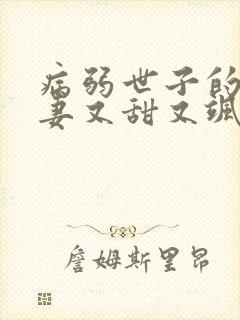 病弱世子的
妻又甜又飒
詹姆斯里昂